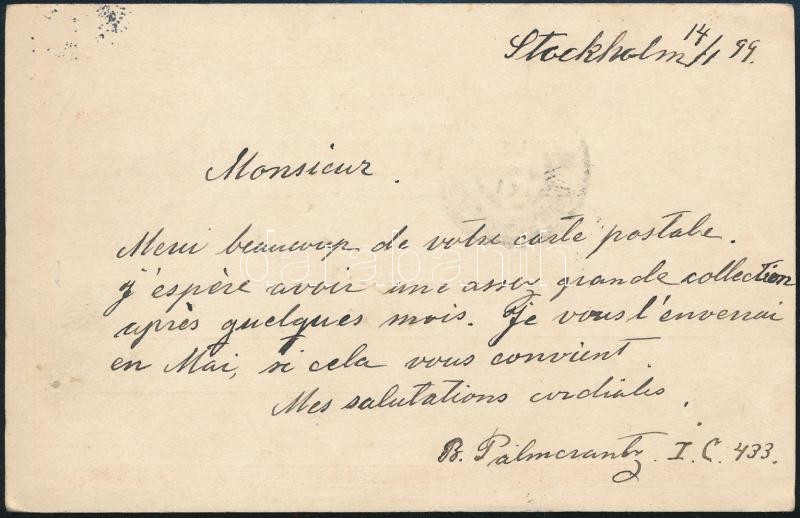 Stockholm 14/1 99.
Monsieur.
Merci beaucoup de votre carte postale.
J'espère avoir une assez grande collection
après quelques mois. Je vous l'enverrai
en Mai, si cela vous convient.
Mes salutations cordiales.
B. Palmcrantz. I. C. 433.
darabanth